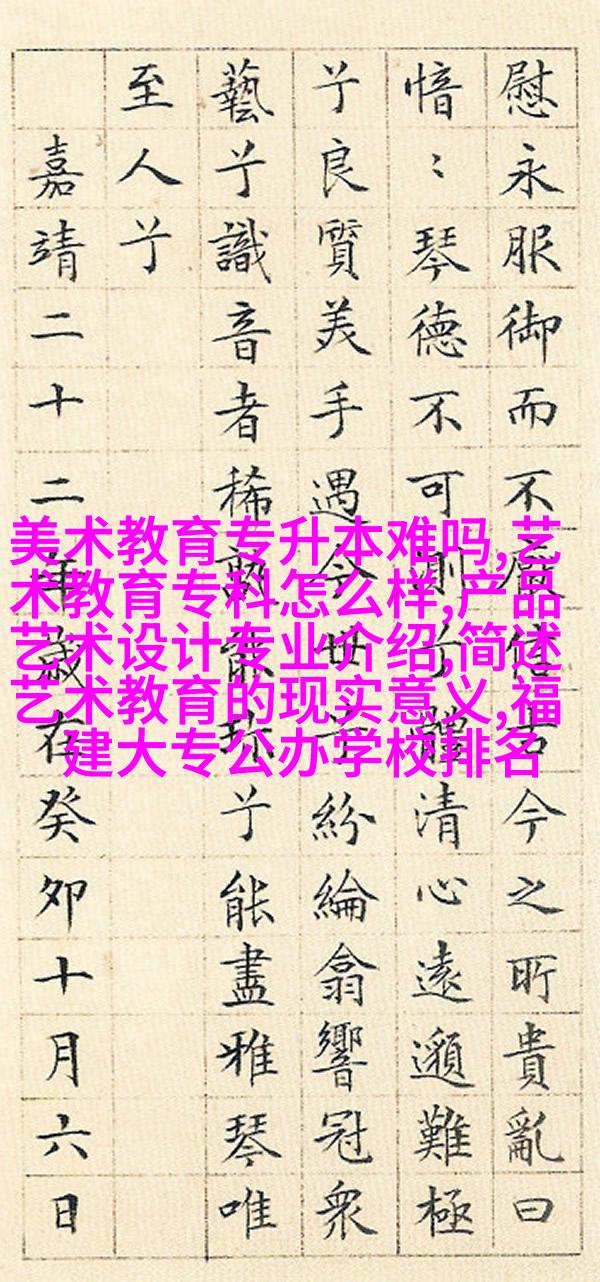 慰永服御而不厭信古今之所貴亂曰
愔〻琴德不可測兮體清心遠邈難極
兮良質美手遇今世兮紛綸翕響冠衆
藝兮識音者稀孰能珎兮能盡雅琴唯
至人兮
嘉靖二十二年歲在癸卯十月六日
美术教育专升本难吗,艺
术教育专科怎么样,产品
艺术设计专业介绍,简述
艺术教育的现实意义,福
建大专公办学校排名